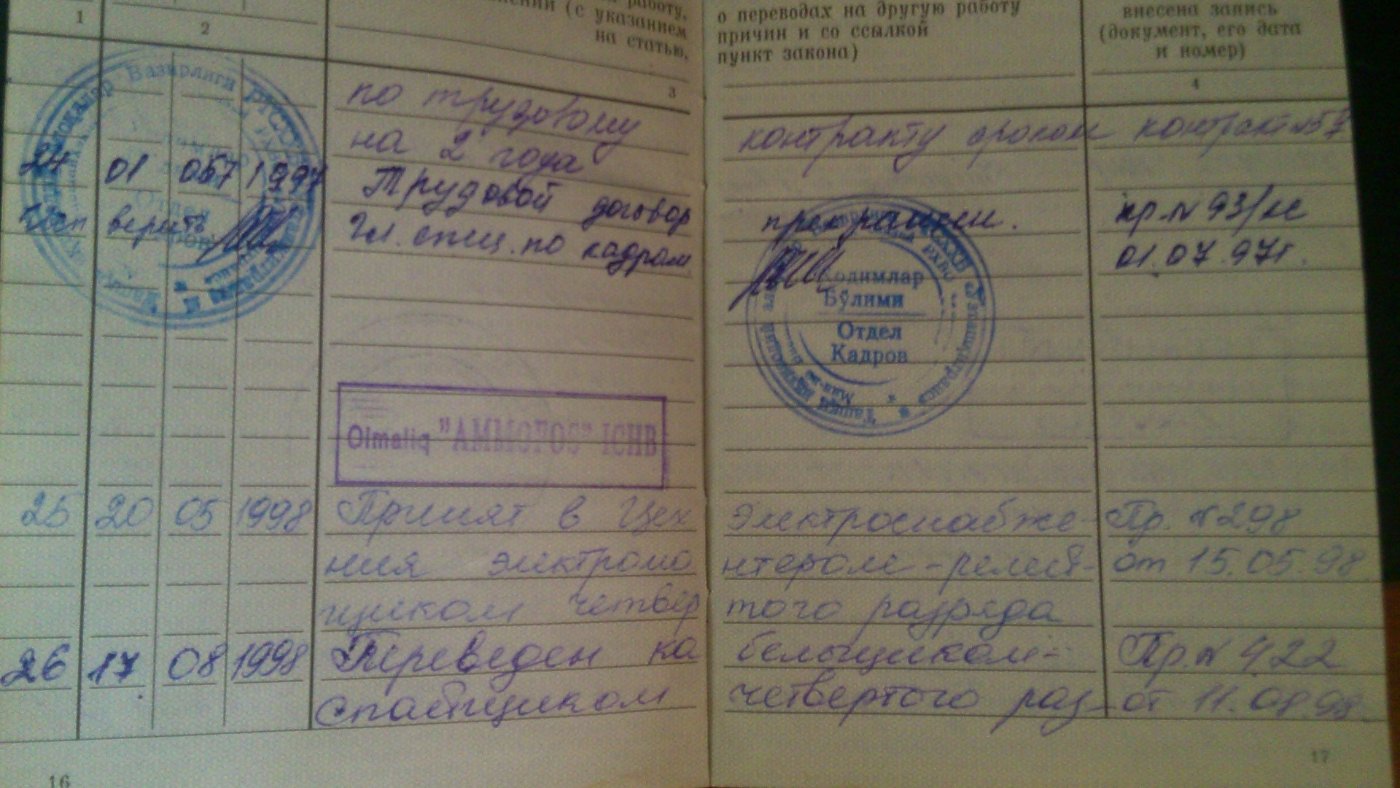 1
2
работу,
(с указанием
на статью,
3
о переводах на другую работу
причин и со ссылкой
пункт закона)
внесена запись
(документ, его дата
и номер)
4
по трудовому контракту сроком контракт №57
на 2 года
24 01 07 1997 Трудовой договор прекращен. пр. № 93/лс
Исп верить Гл. спец. по кадрам 01.07.97г.
Вазирлиги
Отдел
Ходимлар
Бўлими
Отдел
Кадров
Olmaliq "AMMOFOS" ICHB
25 20 05 1998 Принят в Цех электроснабже- Пр. №298
ния электромо нтером-релей- от 15.05.98
щиком четвер того разряда
26 17 08 1998 Переведен ка бельщиком- Пр. № 422
спайщиком четвертого раз- от 11.08.98.
16
17